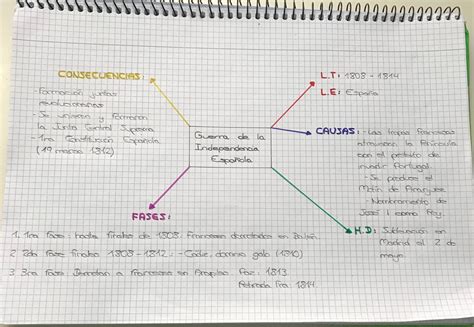 CONSECUENCIAS:
- Formación juntas
revolucionarias
- Se unieron y formaron
la Junta Central Suprema
- 1ra Constitución Española
(19 marzo 1812)
L.T: 1808 - 1814
L.E: España
Guerra de la
Independencia
Española
CAUSAS: - Las tropas francesas
atraviesan la Península
con el pretexto de
invadir Portugal.
- Se produce el
Motín de Aranjuez
- Nombramiento de
José I como Rey.
H.D: Sublevación en
Madrid el 2 de
mayo
FASES:
1. 1ra fase: hasta finales de 1808. Franceses derrotados en Bailén.
2. 2da fase finales 1808 - 1812: - Cádiz, dominio galo (1810)
3. 3ra fase: Derrotan a franceses en 1813.
Retirada fra: 1814